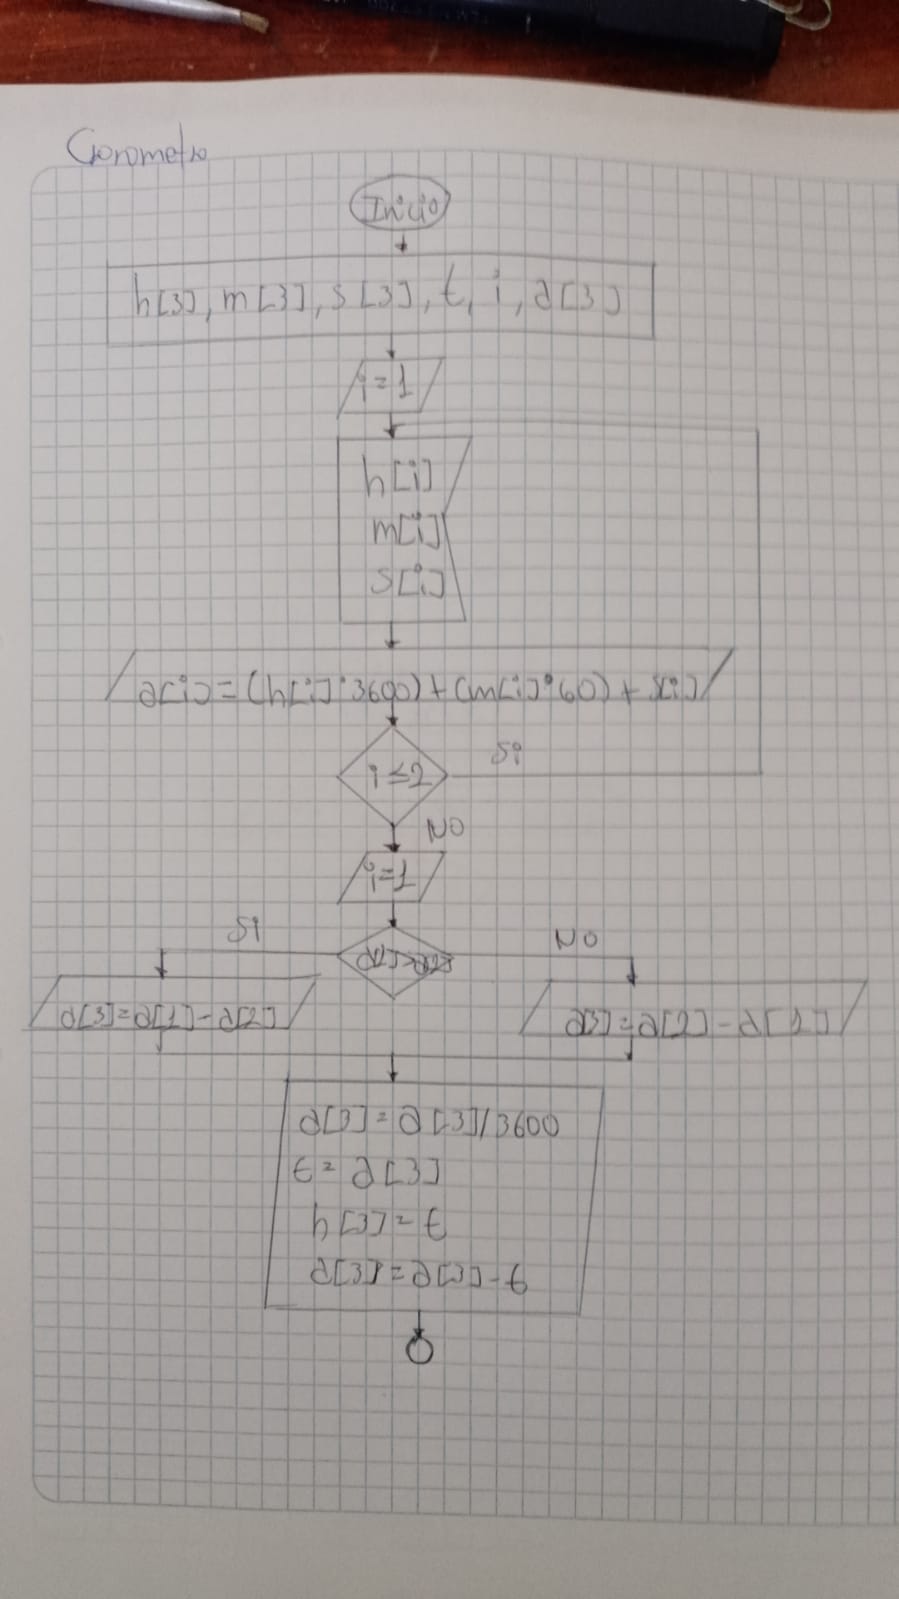 Coronometro
Inicio
h[3], m[3], s[3], t, i, a[3]
i=1
h[i]
m[i]
s[i]
a[i]=(h[i]*3600)+(m[i]*60)+s[i]
i≤2
Si
NO
i=1
Si
NO
a[3]=a[1]-a[2]
a[3]=a[2]-a[1]
a[3]=a[3]/3600
t=a[3]
h[3]=t
a[3]=a[3]-t